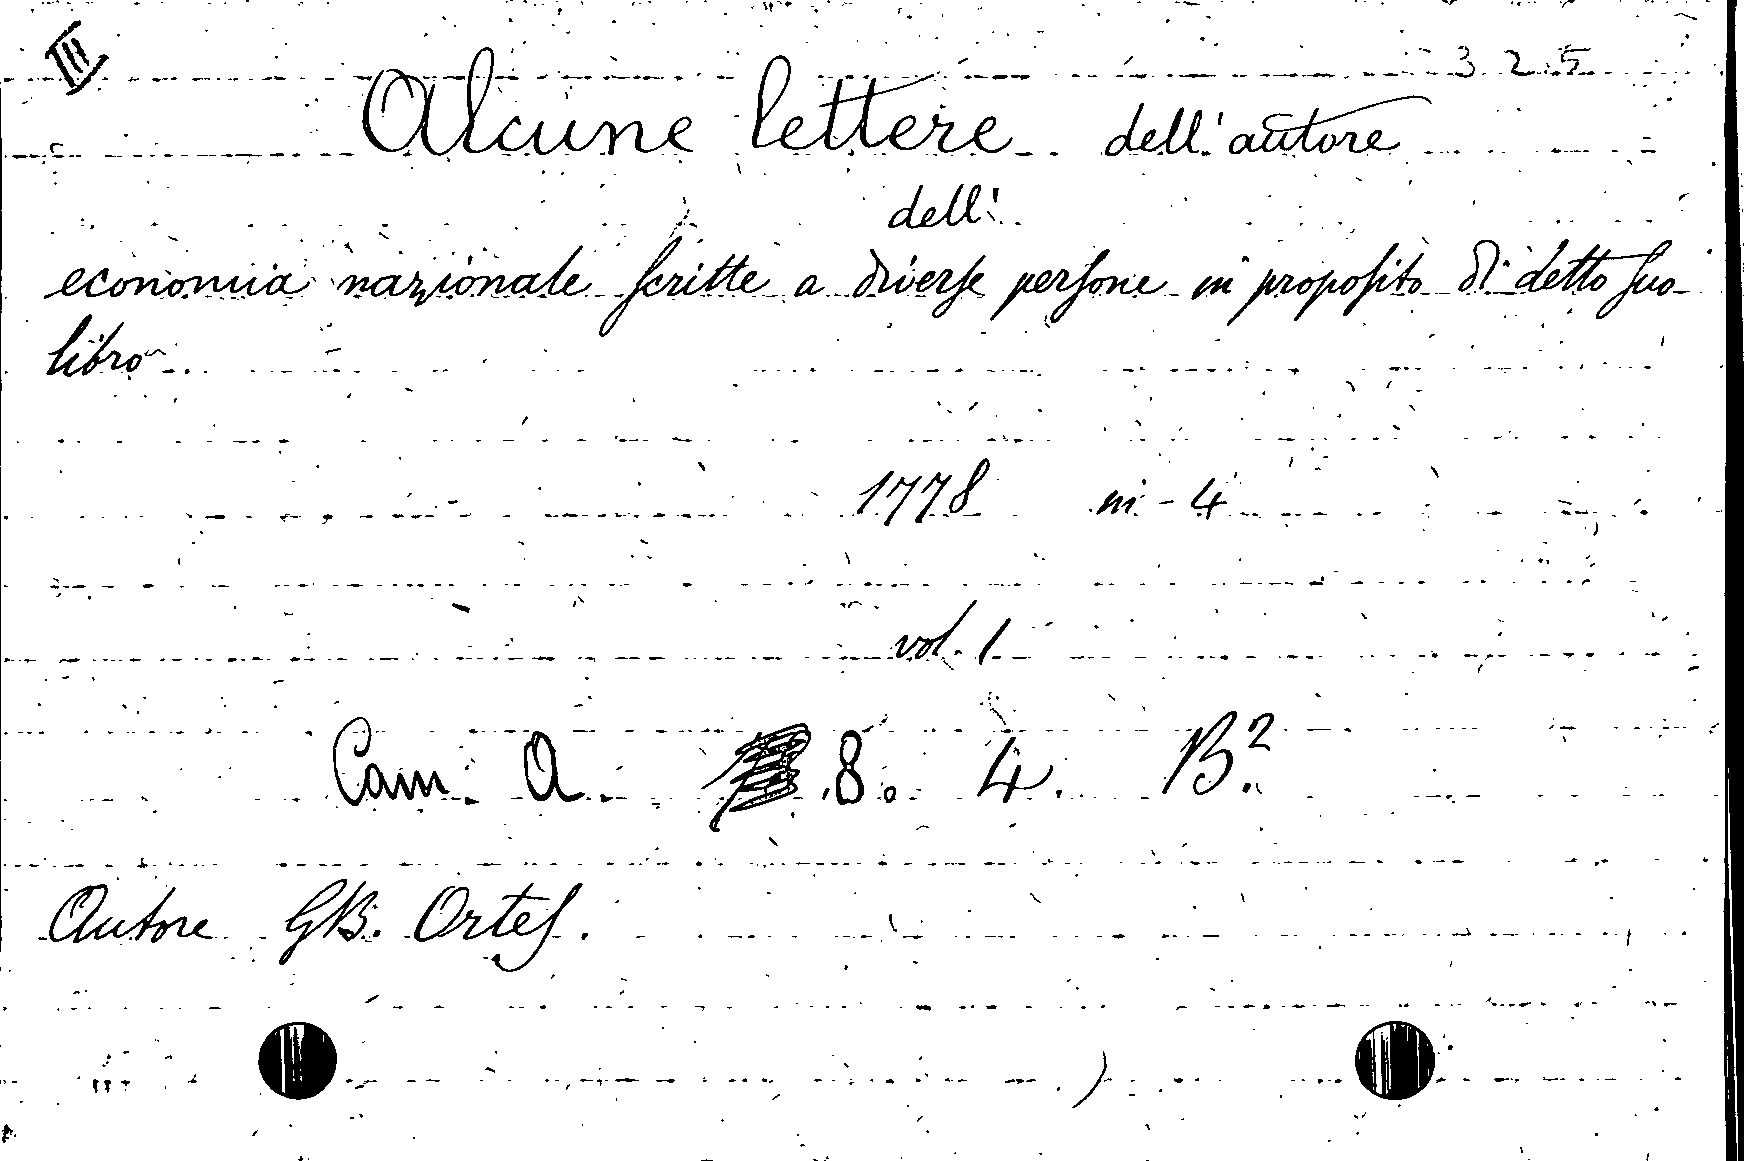 III
325
Alcune lettere dell'autore
dell'
economia nazionale scritte a diverse persone in proposito di detto suo
libro.
1778 in-4
vol. 1
Cam. A. 8. 4. B2.
Autore GB. Ortes.